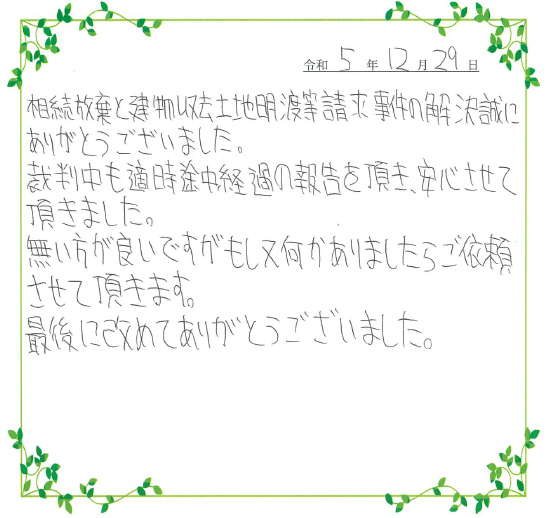 令和 5 年 12 月 29 日
相続放棄と建物収去土地明渡等請求事件の解決誠に
ありがとうございました。
裁判中も適時途中経過の報告を頂き、安心させて
頂きました。
無い方が良いですがもし又何かありましたらご依頼
させて頂きます。
最後に改めてありがとうございました。